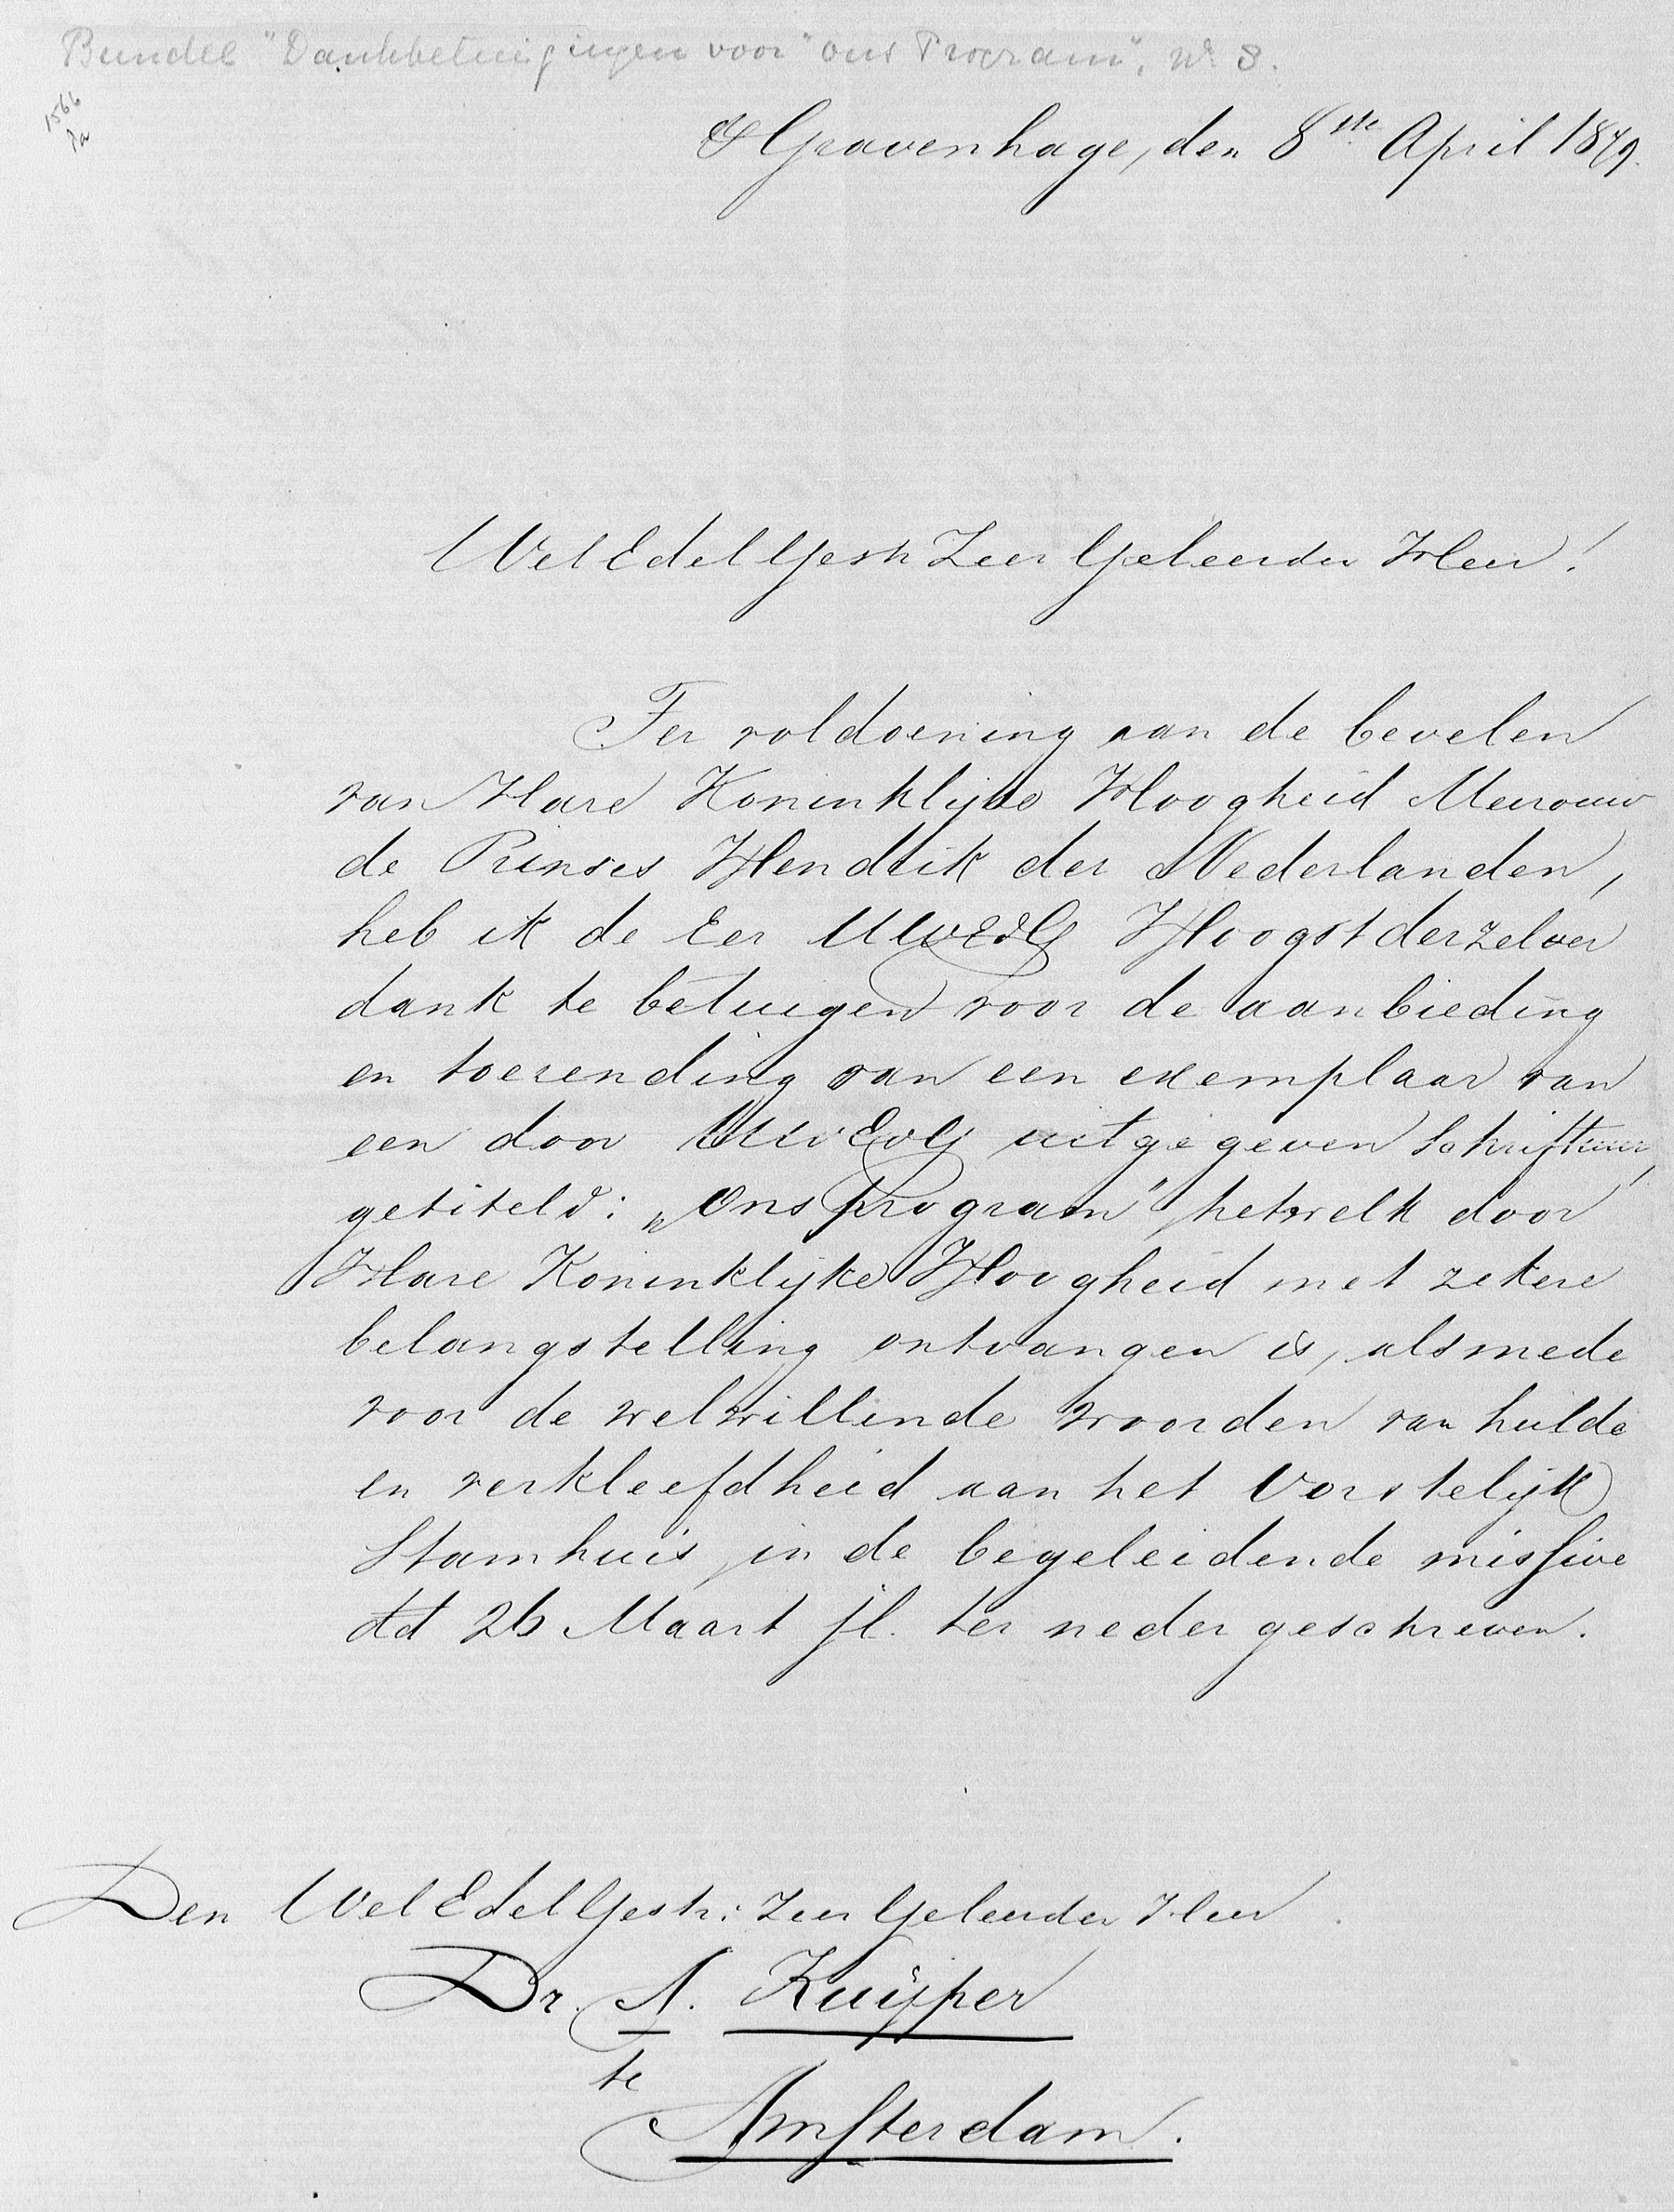 Bundel "Dankbetuigingen voor "ons Program", No 8.
1566
's Gravenhage, den 8ste April 1879.
WelEdelGestr Zeer Geleerde Heer!
Ter voldoening aan de bevelen
van Hare Koninklijke Hoogheid Mevrouw
de Prinses Hendrik der Nederlanden,
heb ik de Eer UwEdG Hoogstderzelver
dank te betuigen voor de aanbieding
en toezending van een exemplaar van
een door UwEdG uitgegeven Schriftuur,
getiteld: „Ons Program" hetwelk door
Hare Koninklijke Hoogheid met zekere
belangstelling ontvangen is, alsmede
voor de welwillende woorden van hulde
en verkleefdheid aan het Vorstelijk
Stamhuis, in de begeleidende missive
dd 26 Maart jl. ter neder geschreven.
Den WelEdelGestr: Zeer Geleerden Heer
Dr. A. Kuijper
te
Amsterdam.